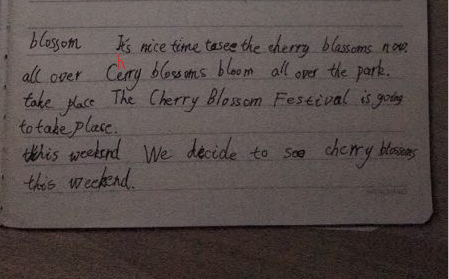 blossom It's nice time to see the cherry blossoms now.
all over Cherry blossoms bloom all over the park.
take place The Cherry Blossom Festival is going
to take place.
this weekend We decide to see cherry blossoms
this weekend.